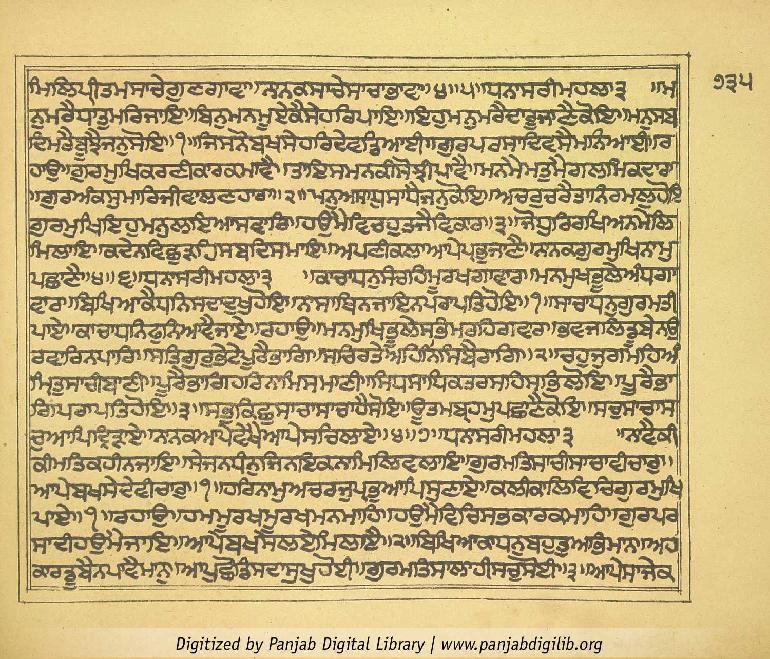 ੭੩੫
ਮਿਲਿਪ੍ਰੀਤਮਸਾਚੇਗੁਣਗਾਵਾ॥ਨਾਨਕਸਾਚੇਸਾਚਾਭਾਵਾ॥੪॥੫॥ਧਨਾਸਰੀਮਹਲਾ੩ ॥ਮ
ਨੁਮਰੈਧਾਤੁਮਰਿਜਾਇ॥ਬਿਨੁਮਨਮੂਏਕੈਸੇਹਰਿਪਾਇ॥ਇਹੁਮਨੁਮਰੈਦਾਰੂਜਾਣੈਕੋਇ॥ਮਨੁਸਬ
ਦਿਮਰੈਬੂਝੈਜਨੁਸੋਇ॥੧॥ਜਿਸਨੋਬਖਸੇਹਰਿਦੇਵਡਿਆਈ॥ਗੁਰਪਰਸਾਦਿਵਸੈਮਨਿਆਈ॥ਰ
ਹਾਉ॥ਗੁਰਮੁਖਿਕਰਣੀਕਾਰਕਮਾਵੈ॥ਤਾਇਸਮਨਕੀਸੋਝੀਪਾਵੈ॥ਮਨੁਮੈਮਤੁਮੈਗਲਮਿਕਦਾਰਾ
॥ਗੁਰੁਅੰਕਸੁਮਾਰਿਜੀਵਾਲਣਹਾਰਾ॥੨॥ਮਨੁਅਸਾਧੁਸਾਧੈਜਨੁਕੋਇ॥ਅਚਰੁਚਰੈਤਾਨਿਰਮਲੁਹੋਇ
ਗੁਰਮੁਖਿਇਹੁਮਨੁਲਇਆਸਵਾਰਿ॥ਹਉਮੈਵਿਚਹੁਤਜੈਵਿਕਾਰ॥੩॥ਜੋਧੁਰਿਰਖਿਅਨੁਮੇਲਿ
ਮਿਲਾਇ॥ਕਦੇਨਵਿਛੁੜਹਿਸਬਦਿਸਮਾਇ॥ਅਪਣੀਕਲਾਆਪੇਪ੍ਰਭੁਜਾਣੈ॥ਨਾਨਕਗੁਰਮੁਖਿਨਾਮੁ
ਪਛਾਣੈ॥੪॥੬॥ਧਨਾਸਰੀਮਹਲਾ੩ ॥ਕਾਚਾਧਨੁਸੰਚਹਿਮੂਰਖਗਾਵਾਰ॥ਮਨਮੁਖਭੂਲੇਅੰਧਗਾ
ਵਾਰ॥ਬਿਖਿਆਕੈਧਨਿਸਦਾਦੁਖੁਹੋਇ॥ਨਾਸਾਥਿਜਾਇਨਪਰਾਪਤਿਹੋਇ॥੧॥ਸਾਚਾਧਨੁਗੁਰਮਤੀ
ਪਾਏ॥ਕਾਚਾਧਨੁਫੁਨਿਆਵੈਜਾਏ॥ਰਹਾਉ॥ਮਨਮੁਖਿਭੂਲੇਸਭਿਮਰਹਿਗਵਾਰ॥ਭਵਜਲਿਡੂਬੇਨਉ
ਰਵਾਰਿਨਪਾਰਿ॥ਸਤਿਗੁਰੁਭੇਟੇਪੂਰੈਭਾਗਿ॥ਸਾਚਿਰਤੇਅਹਿਨਿਸਿਬੈਰਾਗਿ॥੨॥ਚਹੁਜੁਗਮਹਿਅੰ
ਮ੍ਰਿਤੁਸਾਚੀਬਾਣੀ॥ਪੂਰੈਭਾਗਿਹਰਿਨਾਮਿਸਮਾਣੀ॥ਸਿਧਸਾਧਿਕਤਰਸਹਿਸਭਿਲੋਇ॥ਪੂਰੈਭਾ
ਗਿਪਰਾਪਤਿਹੋਇ॥੩॥ਸਭੁਕਿਛੁਸਾਚਾਸਾਚਾਹੈਸੋਇ॥ਊਤਮਬ੍ਰਹਮੁਪਛਾਣੈਕੋਇ॥ਸਚੁਸਾਚਾਸ
ਚੁਆਪਿਦ੍ਰਿੜਾਏ॥ਨਾਨਕਆਪੇਵੇਖੈਆਪੇਸਚਿਲਾਏ॥੪॥੭॥ਧਨਾਸਰੀਮਹਲਾ੩ ॥ਨਾਵੈਕੀ
ਕੀਮਤਿਕਹੀਨਜਾਇ॥ਸੇਜਨਧੰਨੁਜਿਨਇਕਨਾਮਿਲਿਵਲਾਇ॥ਗੁਰਮਤਿਸਾਚੀਸਾਚਾਵੀਚਾਰੁ॥
ਆਪੇਬਖਸੇਦੇਵੀਚਾਰੁ॥੧॥ਹਰਿਨਾਮੁਅਚਰਜੁਪ੍ਰਭੁਆਪਿਸੁਣਾਏ॥ਕਲੀਕਾਲਵਿਚਿਗੁਰਮੁਖਿ
ਪਾਏ॥੧॥ਰਹਾਉ॥ਹਮਮੂਰਖਮੂਰਖਮਨਮਾਹਿ॥ਹਉਮੈਵਿਚਿਸਭਕਾਰਕਮਾਹਿ॥ਗੁਰਪਰ
ਸਾਦੀਹਉਮੈਜਾਇ॥ਆਪੇਬਖਸੇਲਏਮਿਲਾਏ॥੨॥ਬਿਖਿਆਕਾਧਨੁਬਹੁਤੁਅਭਿਮਾਨੁ॥ਅਹੰ
ਕਾਰਡੂਬੈਨਪਾਵੈਮਾਨੁ॥ਆਪੁਛੋਡਿਸਦਾਸੁਖੁਹੋਈ॥ਗੁਰਮਤਿਸਾਲਾਹੀਸਚੁਸੋਈ॥੩॥ਆਪੇਸਾਜੇਕ
Digitized by Panjab Digital Library | www.panjabdigilib.org